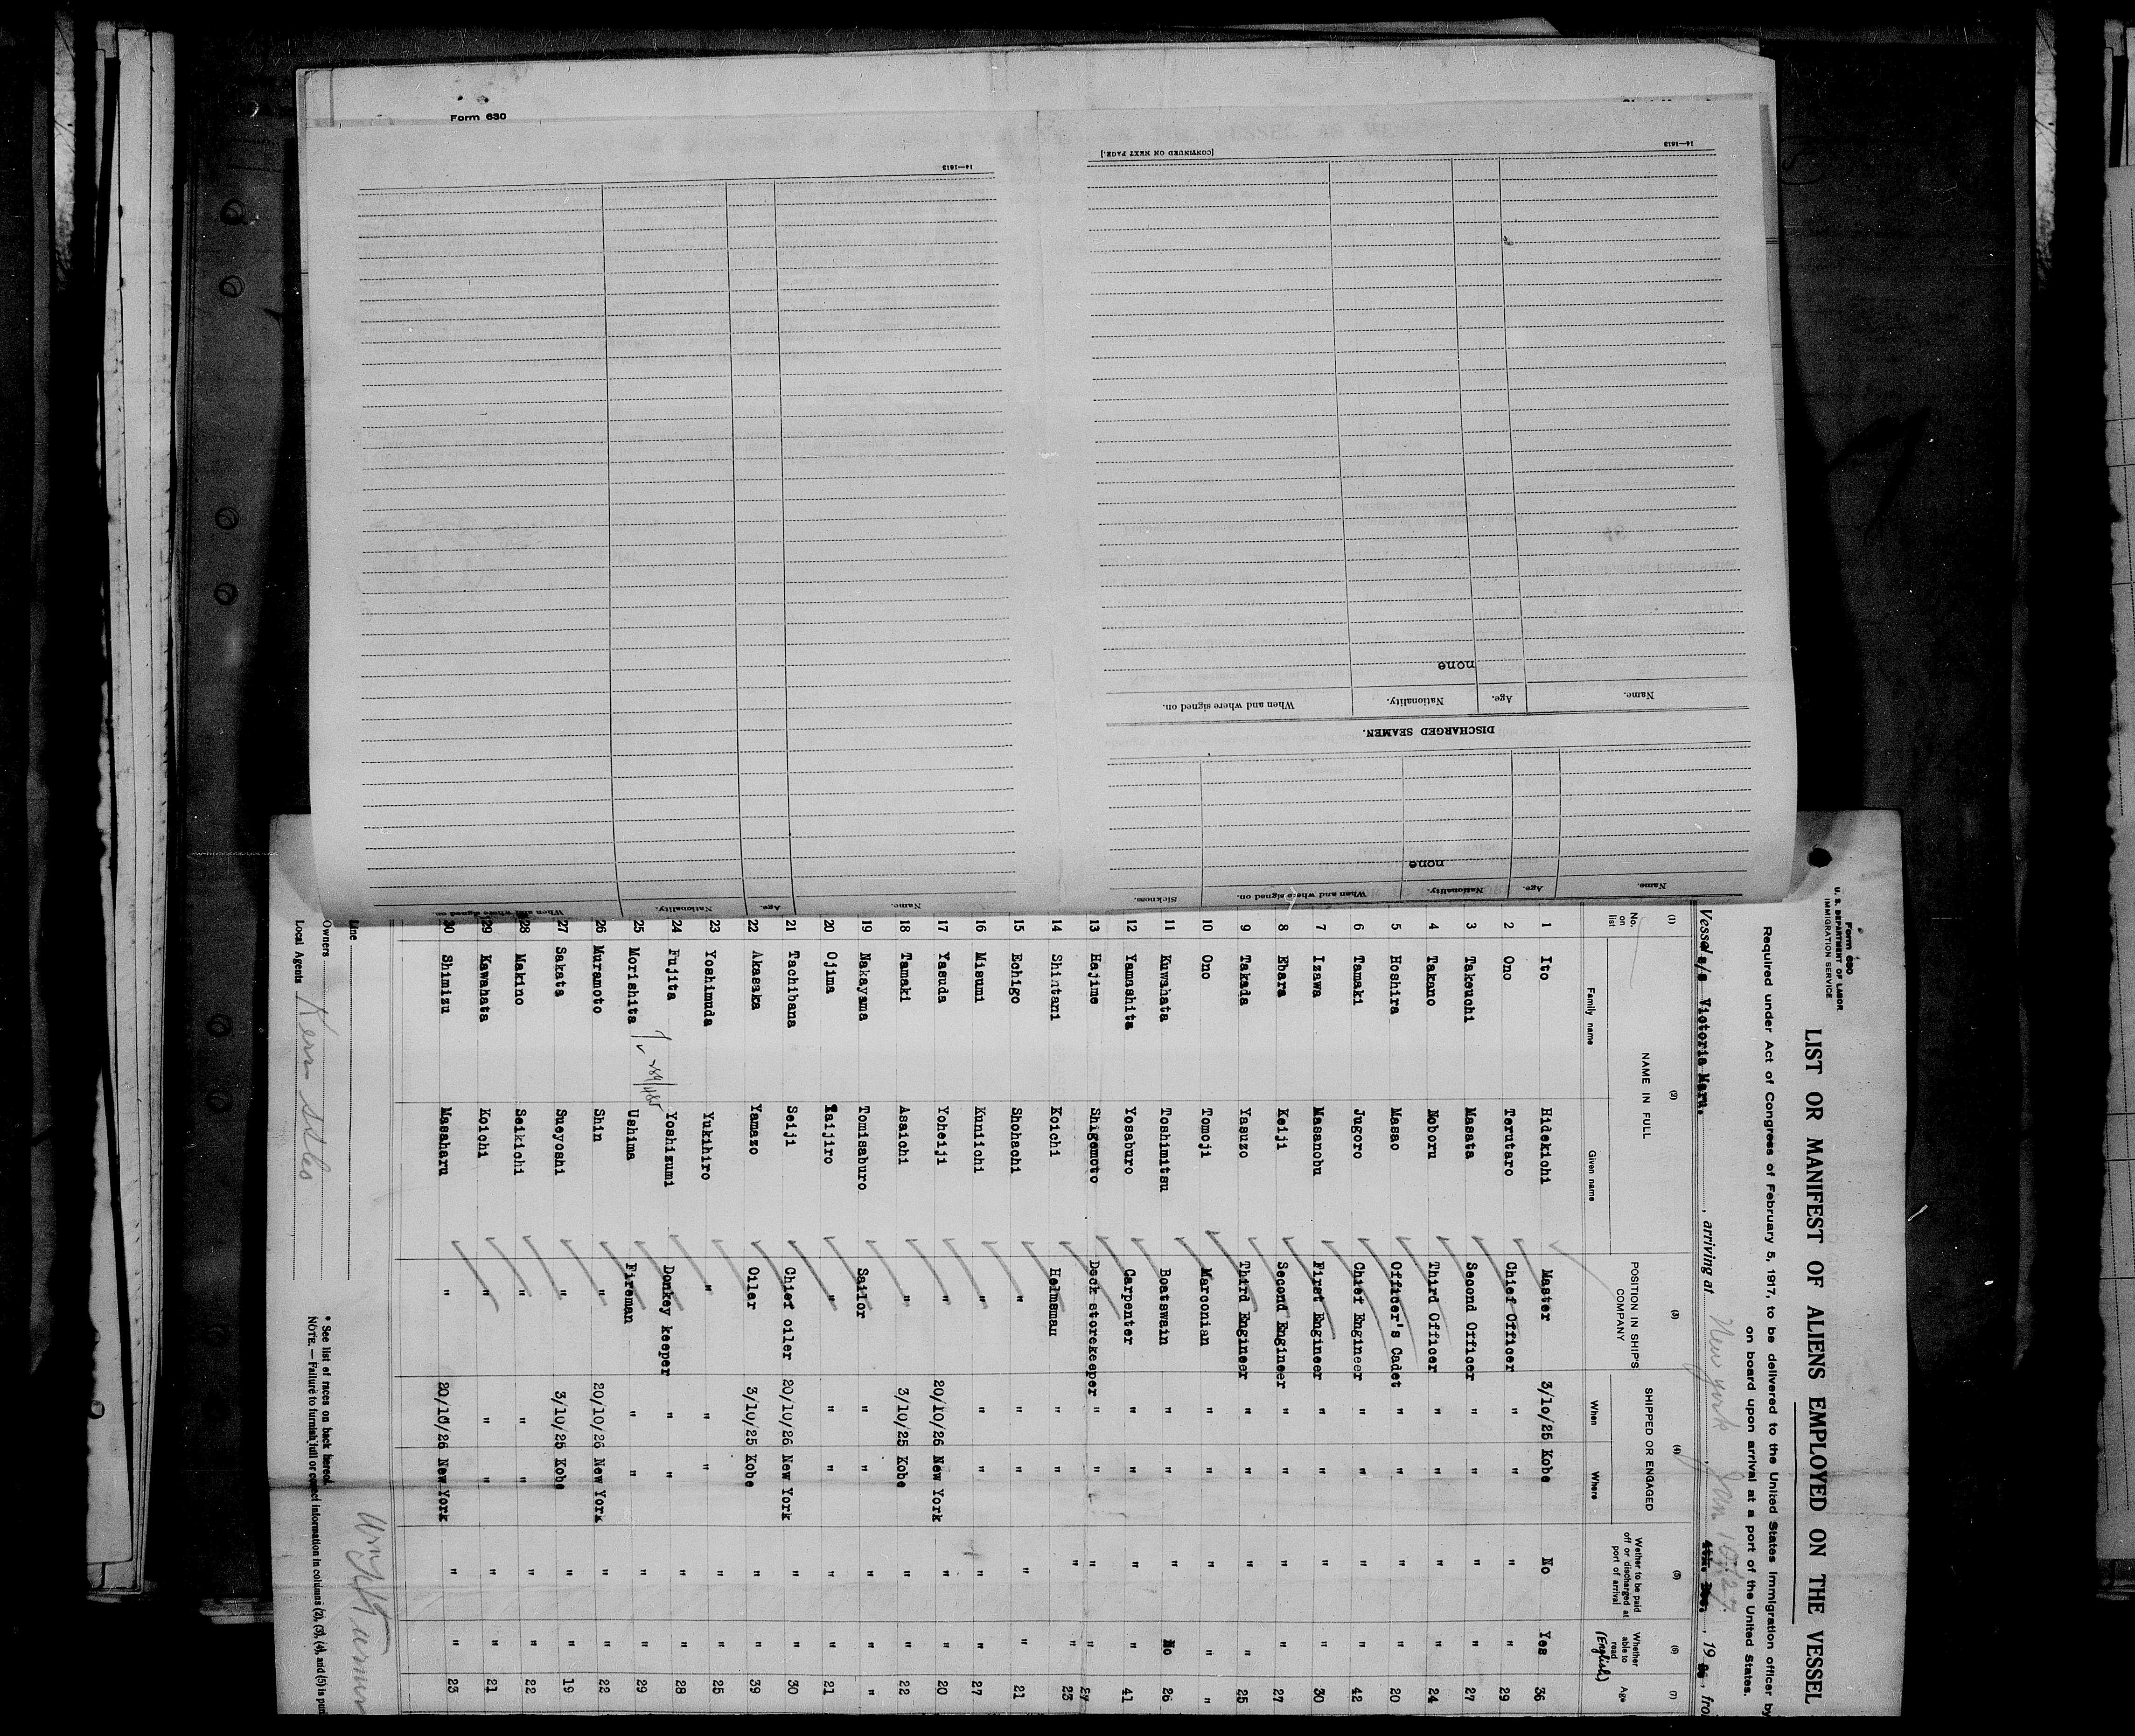 Form 630
14—1613
[CONTINUED ON NEXT PAGE.]
14—1613
none
Name. Age. Nationality. When and where signed on.
DISCHARGED SEAMEN.
none
Name. Age. Nationality. When and where signed on. Sickness.
Name. Age. Nationality. When and where signed on.
Form 630
U. S. DEPARTMENT OF LABOR
IMMIGRATION SERVICE
LIST OR MANIFEST OF ALIENS EMPLOYED ON THE VESSEL
Required under Act of Congress of February 5, 1917, to be delivered to the United States immigration officer by
on board upon arrival at a port of the United States.
Vessel s/s Victoria Maru. , arriving at New york , Jan 10th 27. , 19
(1) (2) (3) (4) (5) (6) (7)
No. on list NAME IN FULL POSITION IN SHIP'S COMPANY SHIPPED OR ENGAGED Wether to be paid off or discharged at port of arrival Whether able to read (English) Age
Family name Given name When Where
1 Ito Hidekichi Master 3/10/25 Kobe No Yes 36
2 Ono Terutaro Chief Officer " " " " 29
3 Takeuchi Masata Second Officer " " " " 27
4 Takano Noboru Third Officer " " " " 24
5 Hoshira Masao Officer's Cadet " " " " 20
6 Tamaki Jugoro Chief Engineer " " " " 42
7 Izawa Masanobu First Engineer " " " " 30
8 Ebara Keiji Second Engineer " " " " 27
9 Takada Yasuzo Third Engineer " " " " 25
10 Ono Tomoji Marconian " " " " "
11 Kuwahata Toshimitsu Boatswain " " " No 26
12 Yamashita Yosaburo Carpenter " " " " 41
13 Hajime Shigemoto Deck storekeeper " " " " 27
14 Shintani Koichi Helmsman " " " " 23
15 Echigo Shohachi " " " " " 21
16 Misumi Kuniichi " " " " " 27
17 Yasuda Yoheiji " 20/10/26 New York " " 20
18 Tamaki Asaichi " 3/10/25 Kobe " " 22
19 Nakayama Tomisaburo Sailor " " " " "
20 Ojima Taijiro " " " " " 21
21 Tachibana Seiji Chief oiler 20/10/26 New York " " 30
22 Akasaka Yamazo Oiler 3/10/25 Kobe " " 39
23 Yoshimuda Yukihiro " " " " " 25
24 Fujita Yoshizumi Donkey keeper " " " " 28
25 Morishita Ushima Fireman " " " " 29
26 Muramoto Shin " 20/10/26 New York " " 22
27 Sakata Sueyoshi " 3/10/25 Kobe " " 19
28 Makino Seikichi " " " " 22
29 Kawahata Koichi " " " " " 21
30 Shimizu Masaharu " 20/10/26 New York " " 23
Line
Owners
Local Agents Kerr
* See list of races on back hereof.
NOTE.—Failure to furnish full or correct information in columns (2), (3), (4), and (5) is